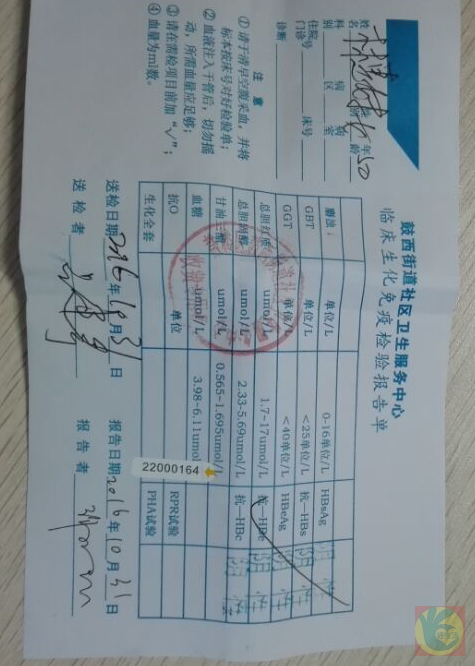 鼓西街道社区卫生服务中心
临床生化免疫检验报告单
姓名 年龄 50
科别 病室
住院号 病区
门诊 床号
诊断
注意
① 请于清早空腹采血,并将
标本按床号对好检验单;
② 血液注入干管后,切勿摇
动,所需血量应足够;
③ 请在需检项目前加“√”;
④ 血量为ml数。
单位/L 0-16单位/L HBsAg 阴性
GBT 单位/L <25单位/L 抗—HBs 阴性
GGT 单位/L <40单位/L HBeAg 阴性
总胆红质 umol/L 1.7-17umol/L 抗—HBe 阴性
总胆固醇 umol/L 2.33-5.69umol/L 抗—HBc 阴性
甘油三酯 umol/L 0.565-1.695umol/L
血糖 umol/L 3.98-6.11umol/L
22000164
抗O 单位 RPR试验
生化全套 PHA试验
送检日期 2016年10月31日 报告日期 2016年10月31日
送检者 报告者